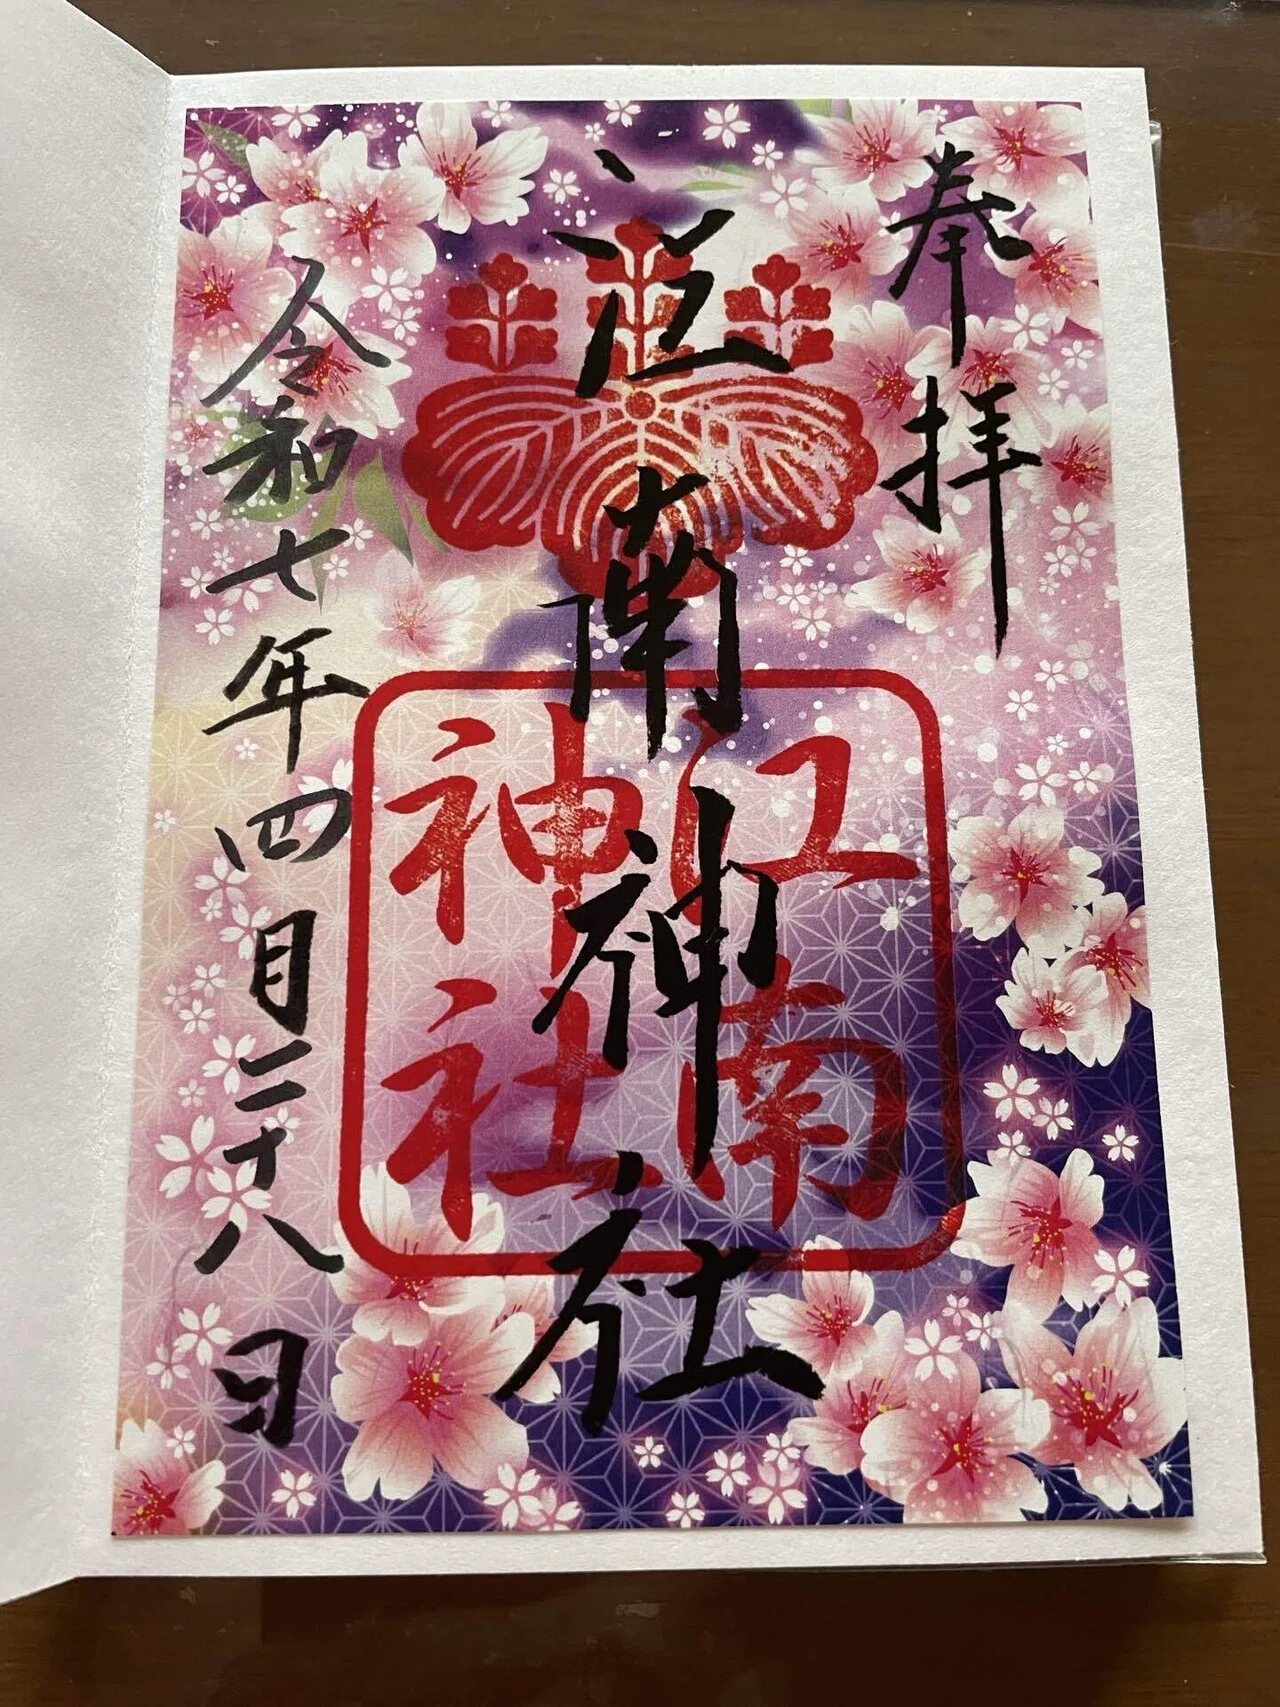 奉拝
江南神社
江南
神社
令和七年四月二十八日